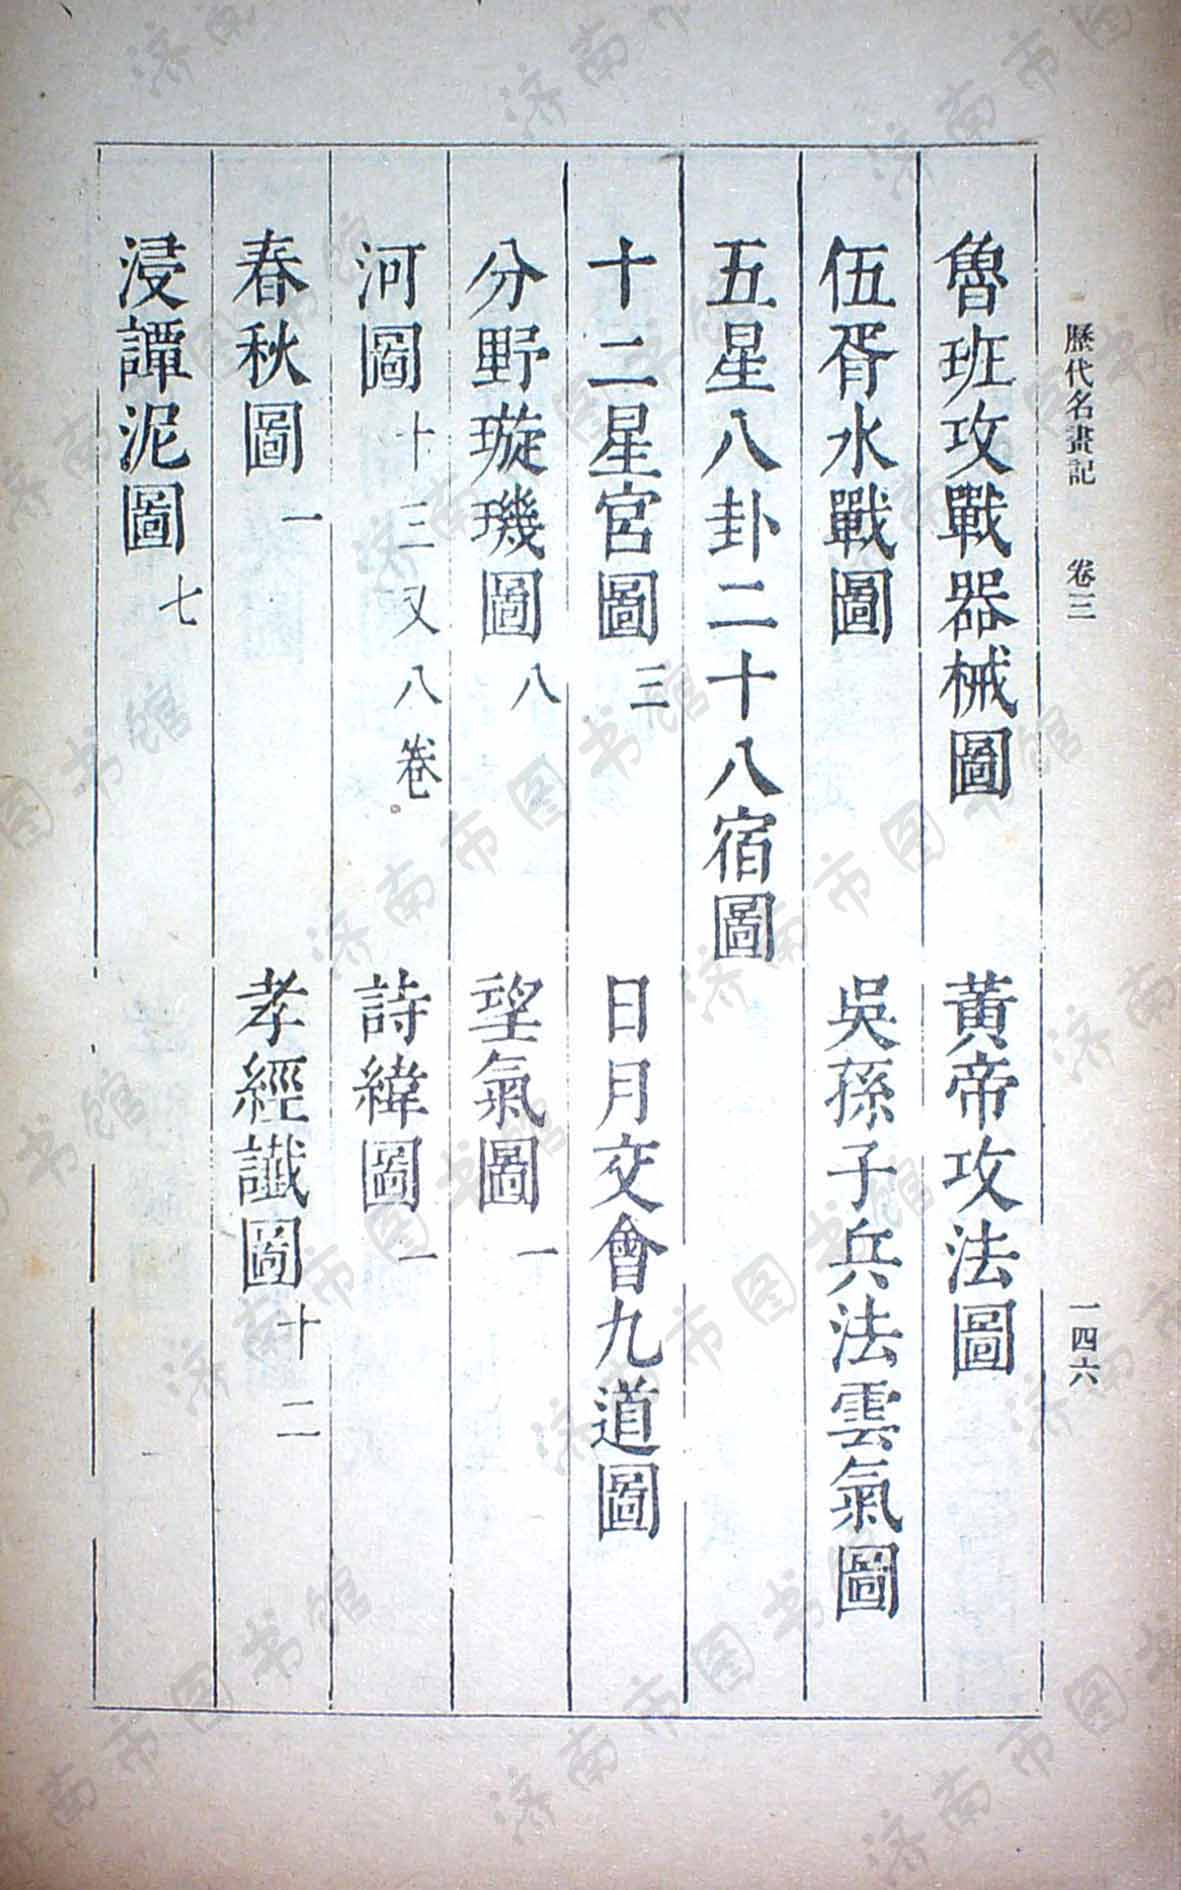 歷代名畫記　卷三　一四六
魯班攻戰器械圖　黃帝攻法圖
伍胥水戰圖　吳孫子兵法雲氣圖
五星八卦二十八宿圖
十二星宮圖三　日月交會九道圖
分野璇璣圖八　望氣圖一
河圖十三又八卷　詩緯圖一
春秋圖一　孝經讖圖十二
浸譚泥圖七
济南市图书馆